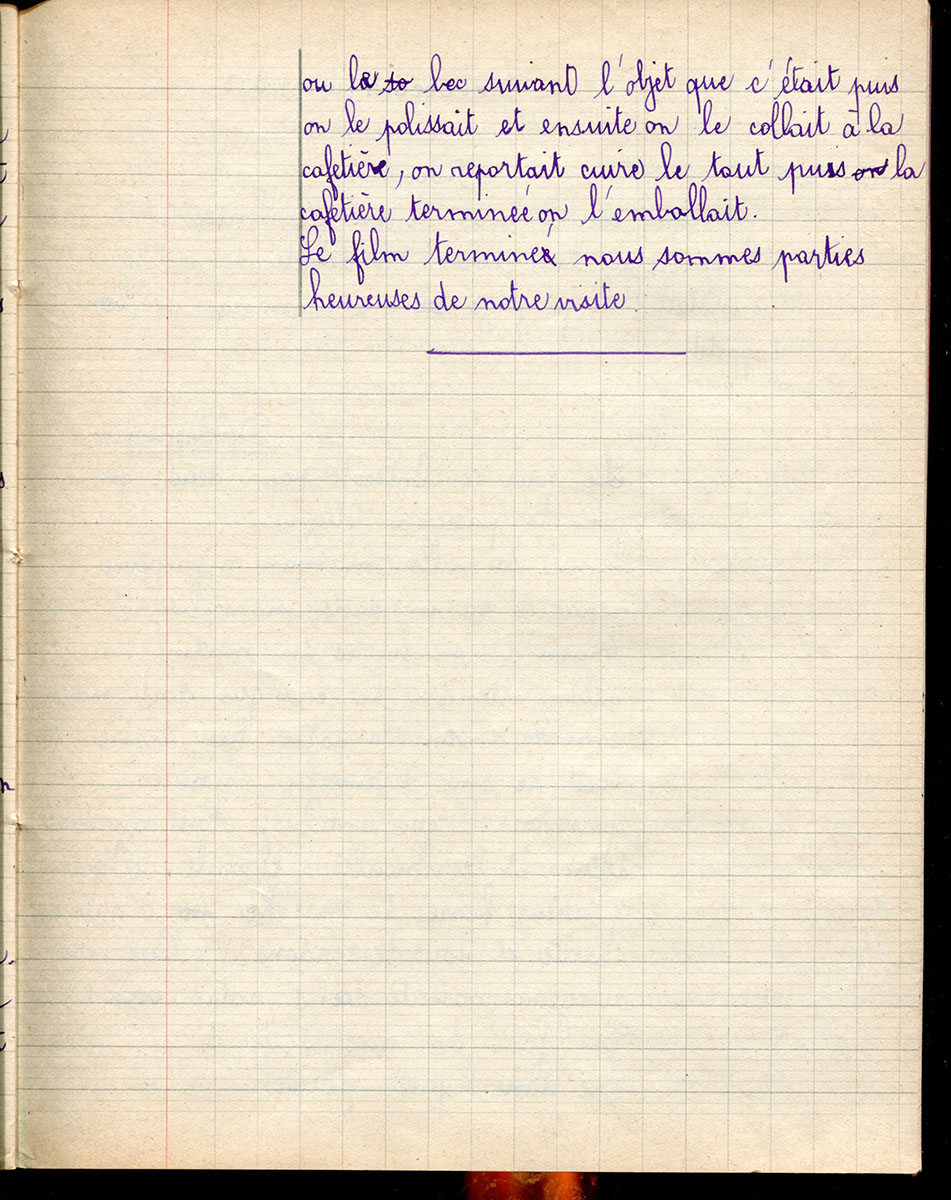 ou le so bec suivant l'objet que c'était puis
on le polissait et ensuite on le collait à la
cafetière, on reportait cuire le tout puis on la
cafetière terminée on l'emballait.
Le film terminé nous sommes parties
heureuses de notre visite